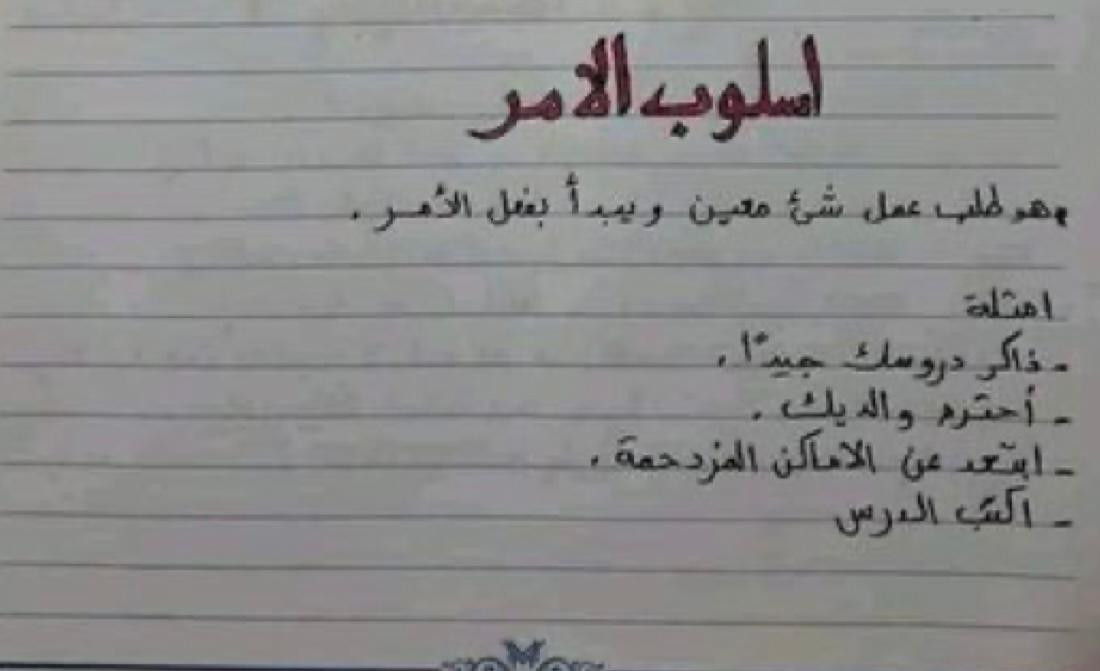 اسلوب الامر
هو طلب عمل شئ معين ويبدأ بفعل الأمر .
امثلة
- ذاكر دروسك جيدًا .
- أحترم والديك .
- ابتعد عن الاماكن المزدحمة .
- اكتب الدرس